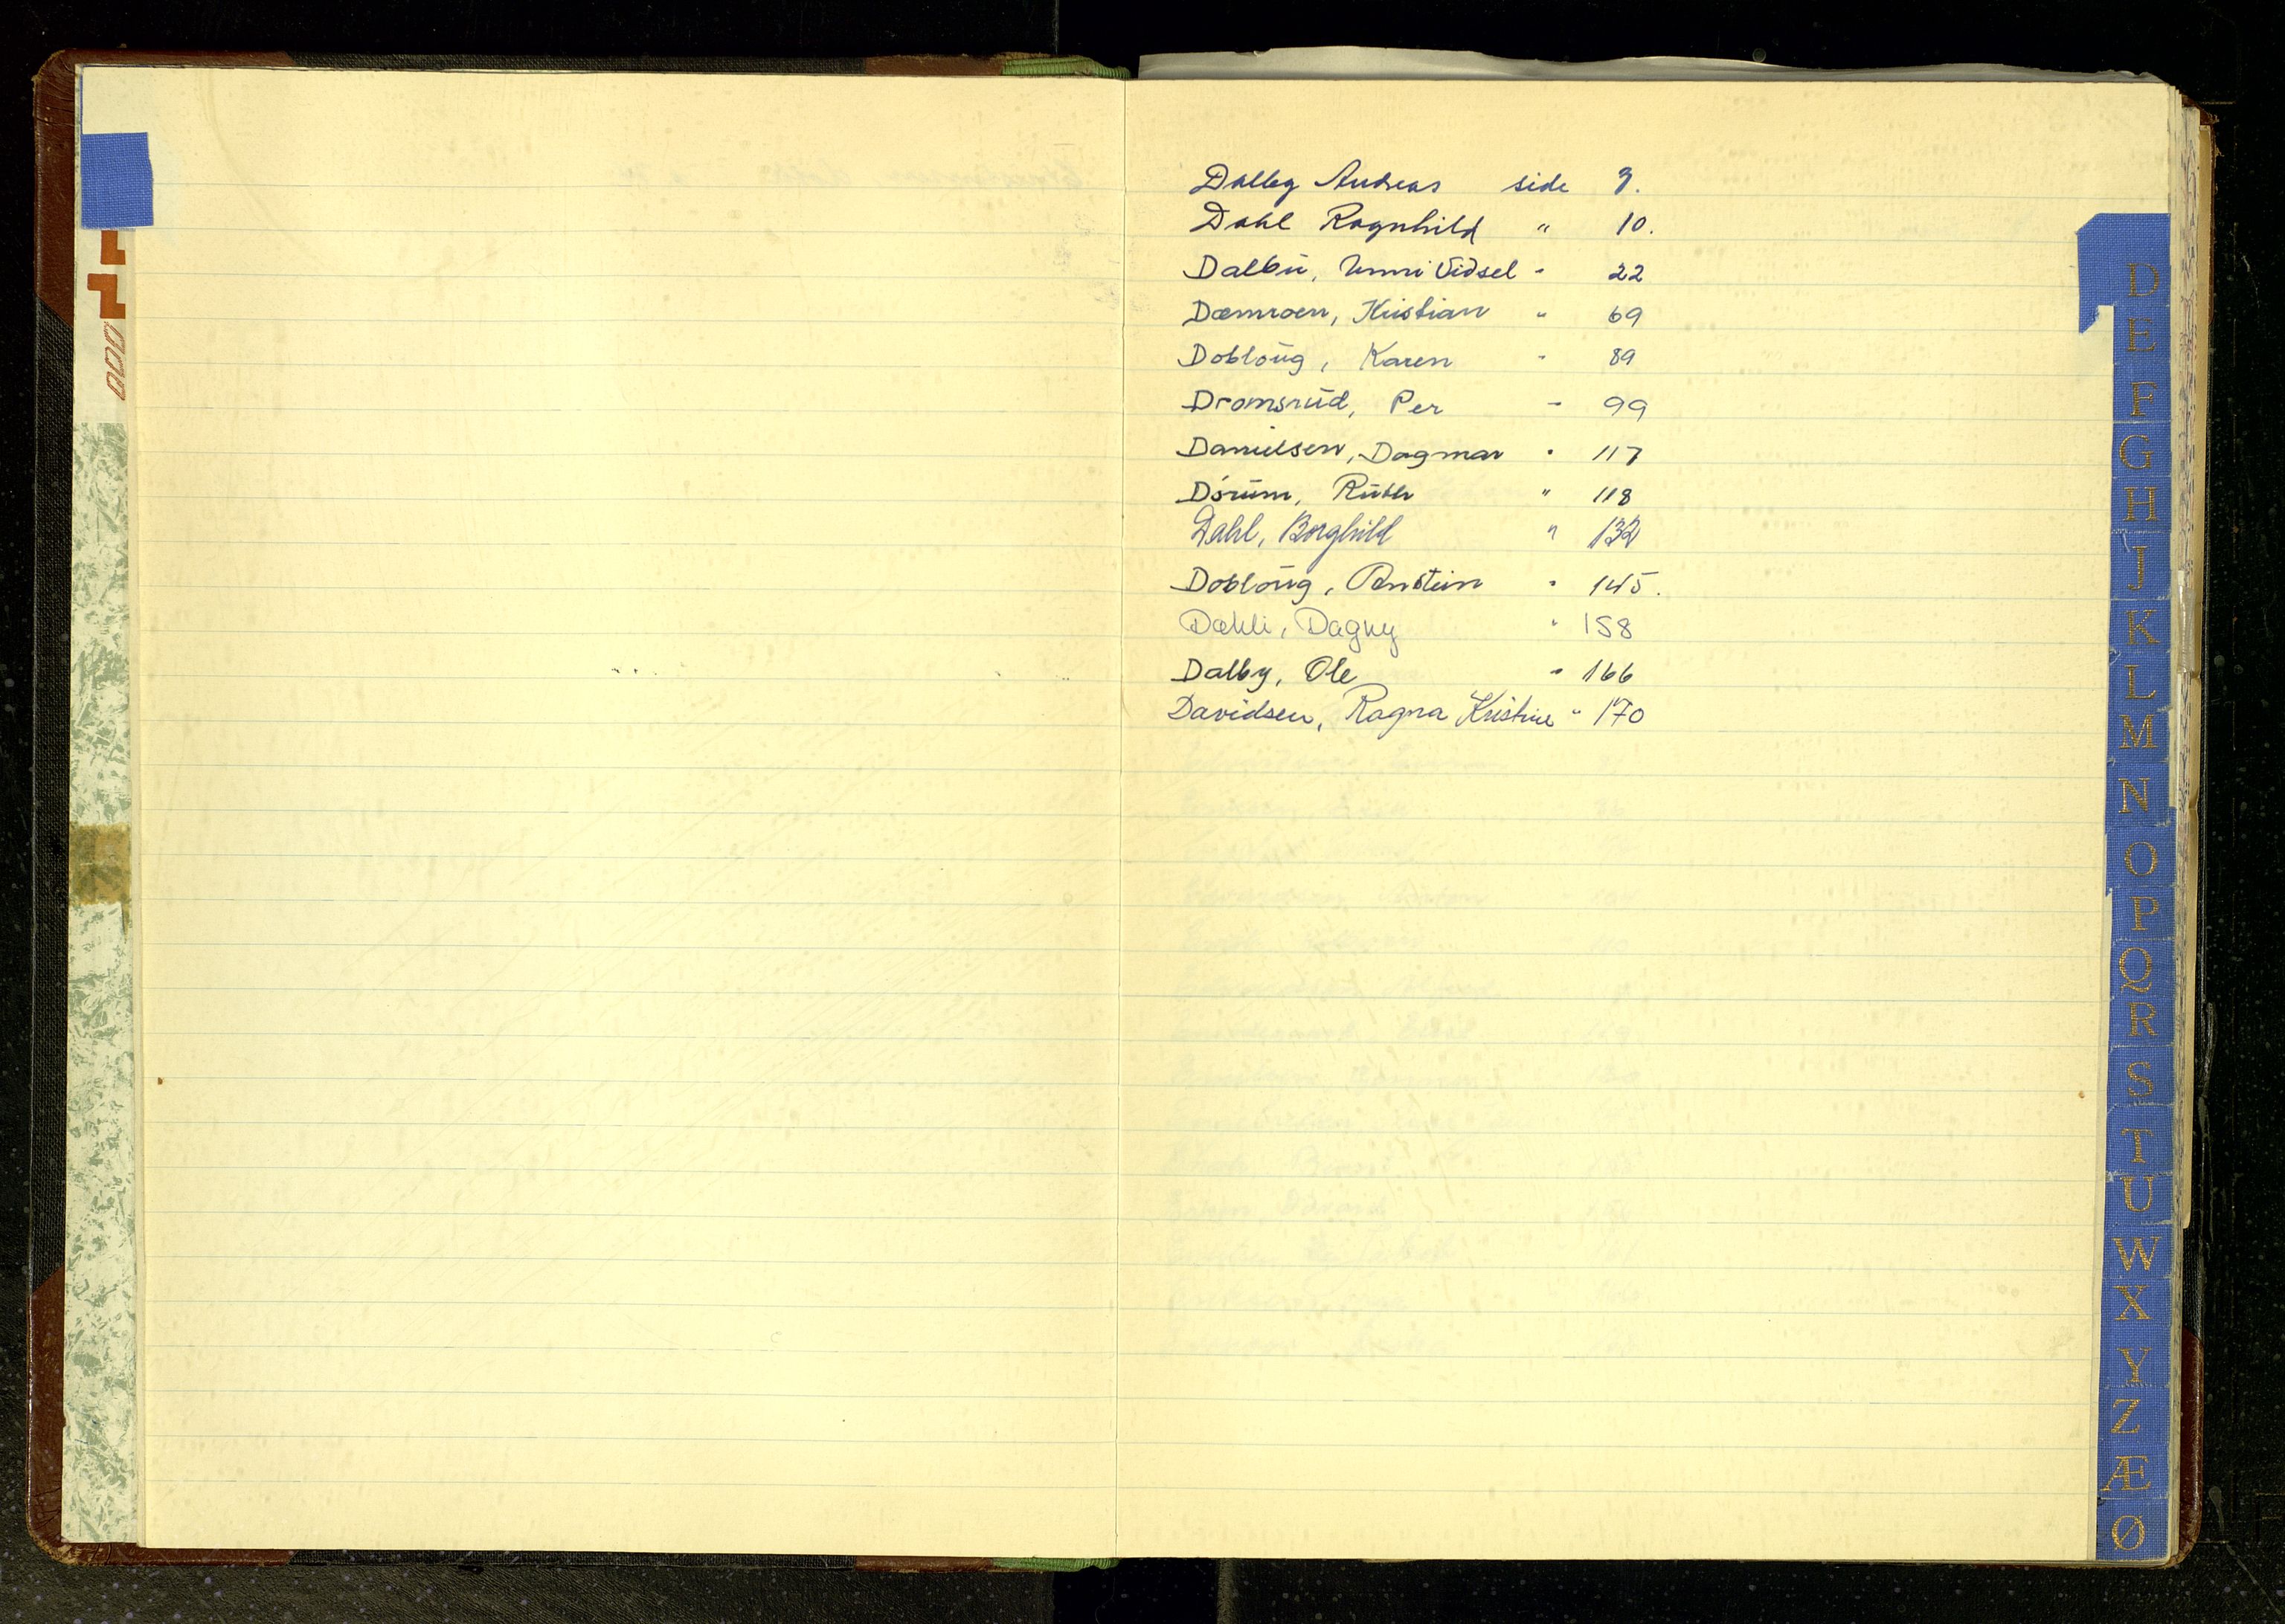 Dalby Andreas side 3.
Dahl Ragnhild " 10.
Dalbu, Unni Vidsel " 22
Dæmroen, Kristian " 69
Dobloug, Karen " 89
Dromsrud, Per " 99
Danielsen, Dagmar " 117
Dørum, Ruth " 118
Dahl, Borghild " 132
Dobloug, " 145.
Dæhli, Dagny " 158
Dalby, Ole " 166
Davidsen, Ragna Kristine " 170
D
E
F
G
H
J
K
L
M
N
O
P
Q
R
S
T
U
W
X
Y
Z
Æ
Ø